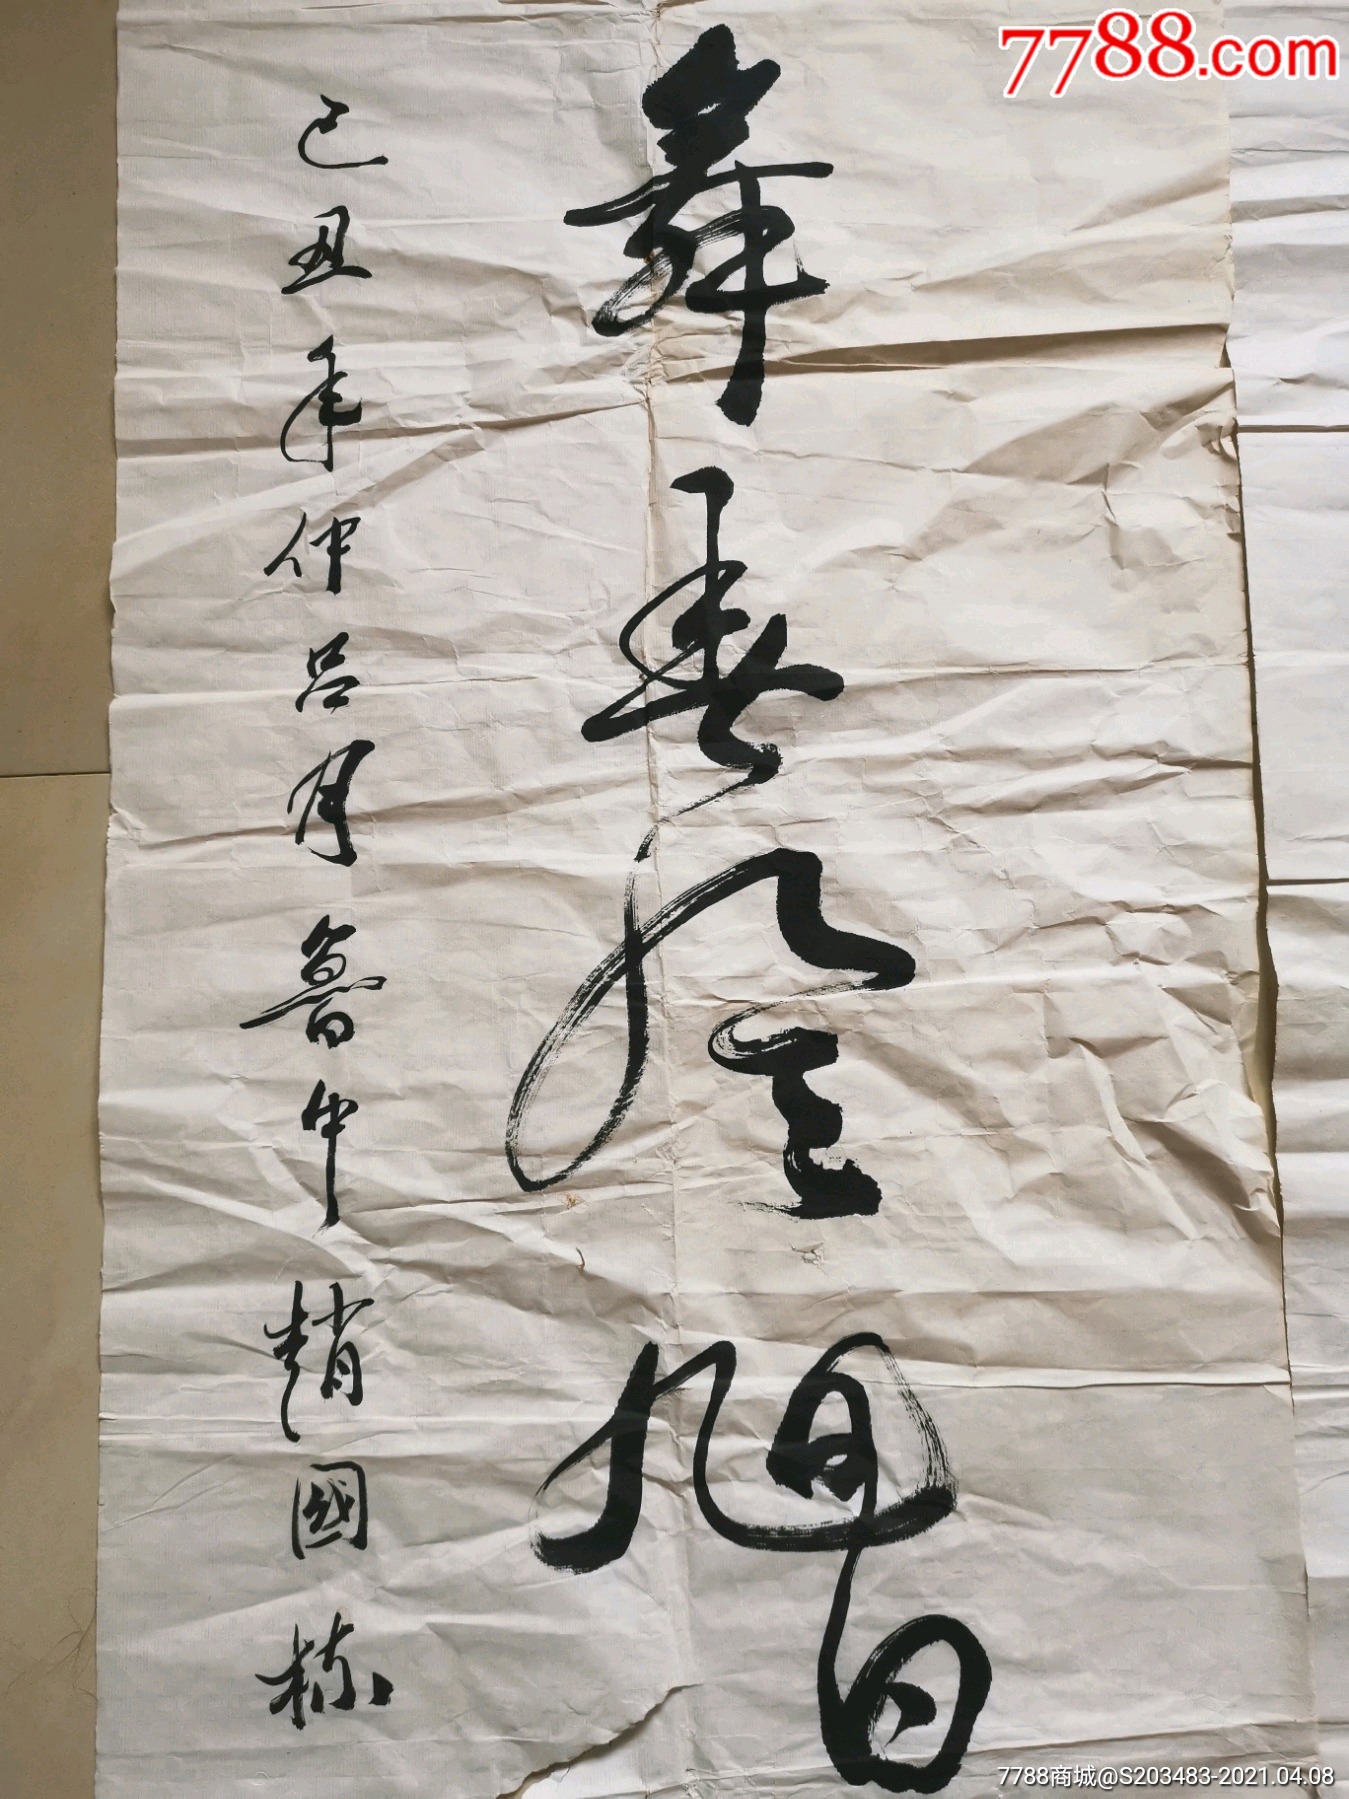 7788.com
舞春旭日
己丑年仲吕月魯中趙國栋
7788商城@S203483-2021.04.08